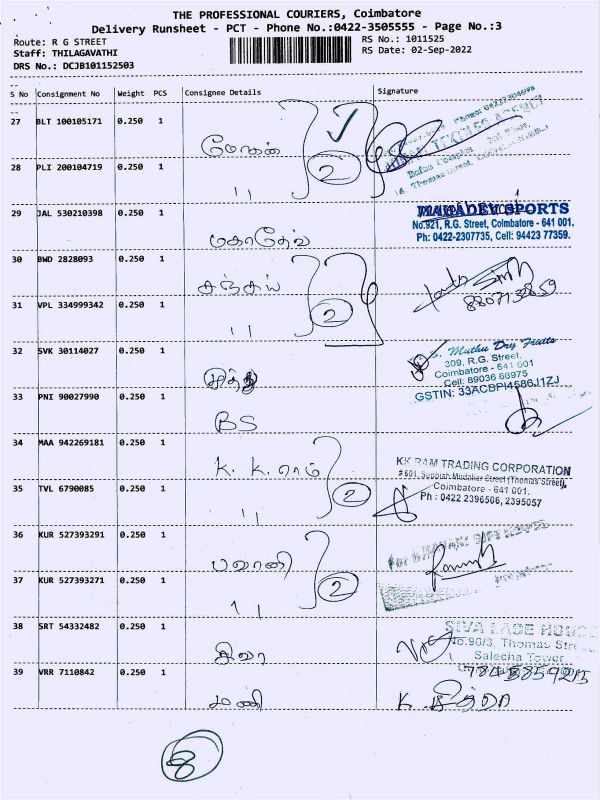 THE PROFESSIONAL COURIERS, Coimbatore
Delivery Runsheet - PCT - Phone No.:0422-3505555 - Page No.:3
Route: R G STREET
RS No.: 1011525
Staff: THILAGAVATHI
RS Date: 02-Sep-2022
DRS No.: DCJB101152503
S No Consignment No Weight PCS Consignee Details Signature
27 BLT 100105171 0.250 1
மோகன்
28 PLI 200104719 0.250 1
2
11
29 JAL 530210398 0.250 1
மகாதேவ்
MAHADEV SPORTS
No.921, R.G. Street, Coimbatore - 641 001.
Ph: 0422-2307735, Cell: 94423 77359.
30 BWD 2828093 0.250 1
சஞ்சய்
31 VPL 334999342 0.250 1
2
11
32 SVK 30114027 0.250 1
முத்து
Muthu Dry Fruits
309, R.G. Street,
Coimbatore - 641 001
Cell: 89036 66975
GSTIN: 33ACBPI4586J1ZJ
33 PNI 90027990 0.250 1
BS
34 MAA 942269181 0.250 1
K. K. ராம்
KK RAM TRADING CORPORATION
# 601, Subbiah Mudaliar Street (Thomas Street),
Coimbatore - 641 001.
Ph : 0422 2396506, 2395057
35 TVL 6790085 0.250 1
2
11
36 KUR 527393291 0.250 1
பவானி
37 KUR 527393271 0.250 1
2
11
38 SRT 54332482 0.250 1
SIVA LACE HOUSE
No.90/3, Thomas Street
Salecha Tower
39 VRR 7110842 0.250 1
மணி
K. சித்ரா
8